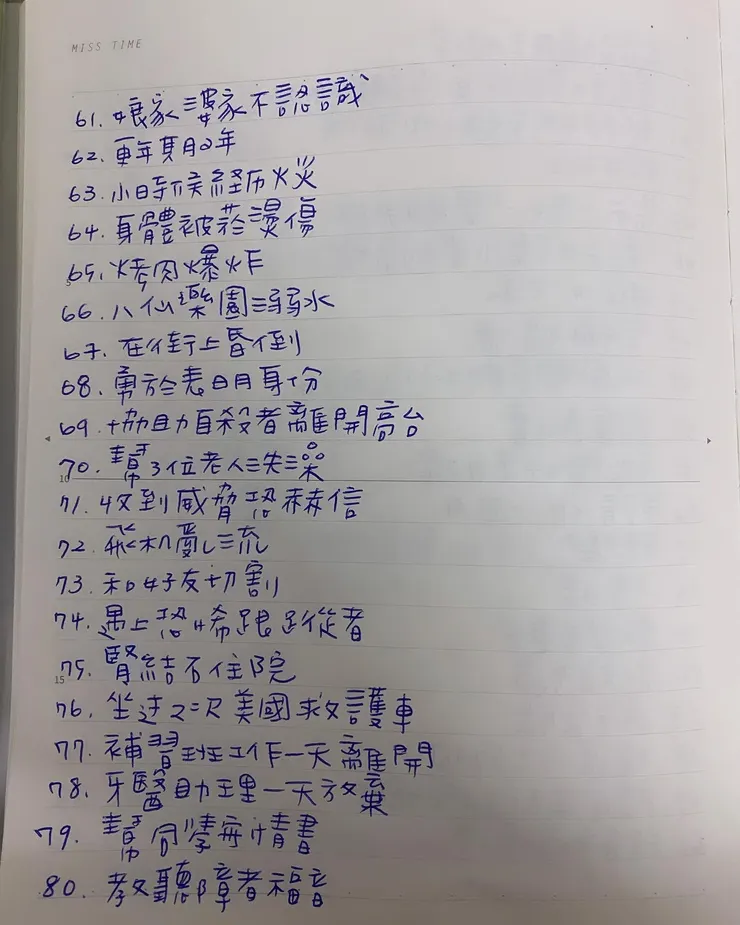 MISS TIME
61. 娘家婆家不認識
62. 更年期2年
63. 小時候經历火災
64. 身體被茶燙傷
65. 烤肉爆炸
66. 八仙樂園溺水
67. 在街上昏倒
68. 勇於表明身份
69. 協助自殺者離開高台
70. 幫3位老人洗澡
71. 收到威脅恐赫信
72. 飛机亂流
73. 和好友切割
74. 遇上恐怖跟蹤者
75. 腎結石住院
76. 坐过2次美國救護車
77. 補習班工作一天離開
78. 牙醫助理一天放棄
79. 幫同學寄情書
80. 教聽障者福音
5
10
15